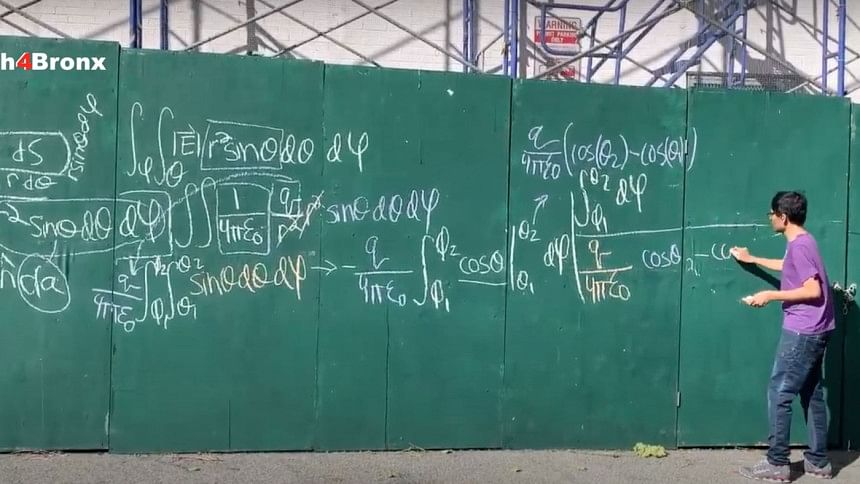 h4Bronx
WARNING
PERMIT PARKING
ONLY
dS
rdθ
sinθdφ
² sinθdθ dφ
n̂ da
∫φ ∫θ |E| r² sinθ dθ dφ
∫∫ 1/4πε₀ q/r² r² sinθ dθ dφ
q/4πε₀ ∫φ₁^φ₂ ∫θ₁^θ₂ sinθ dθ dφ → - q/4πε₀ ∫φ₁^φ₂ cosθ |θ₁^θ₂ dφ
q/4πε₀ (cos(θ₂)-cos(θ₁))
∫φ₁^θ₂ dφ
q/4πε₀ cosθ₂ - co